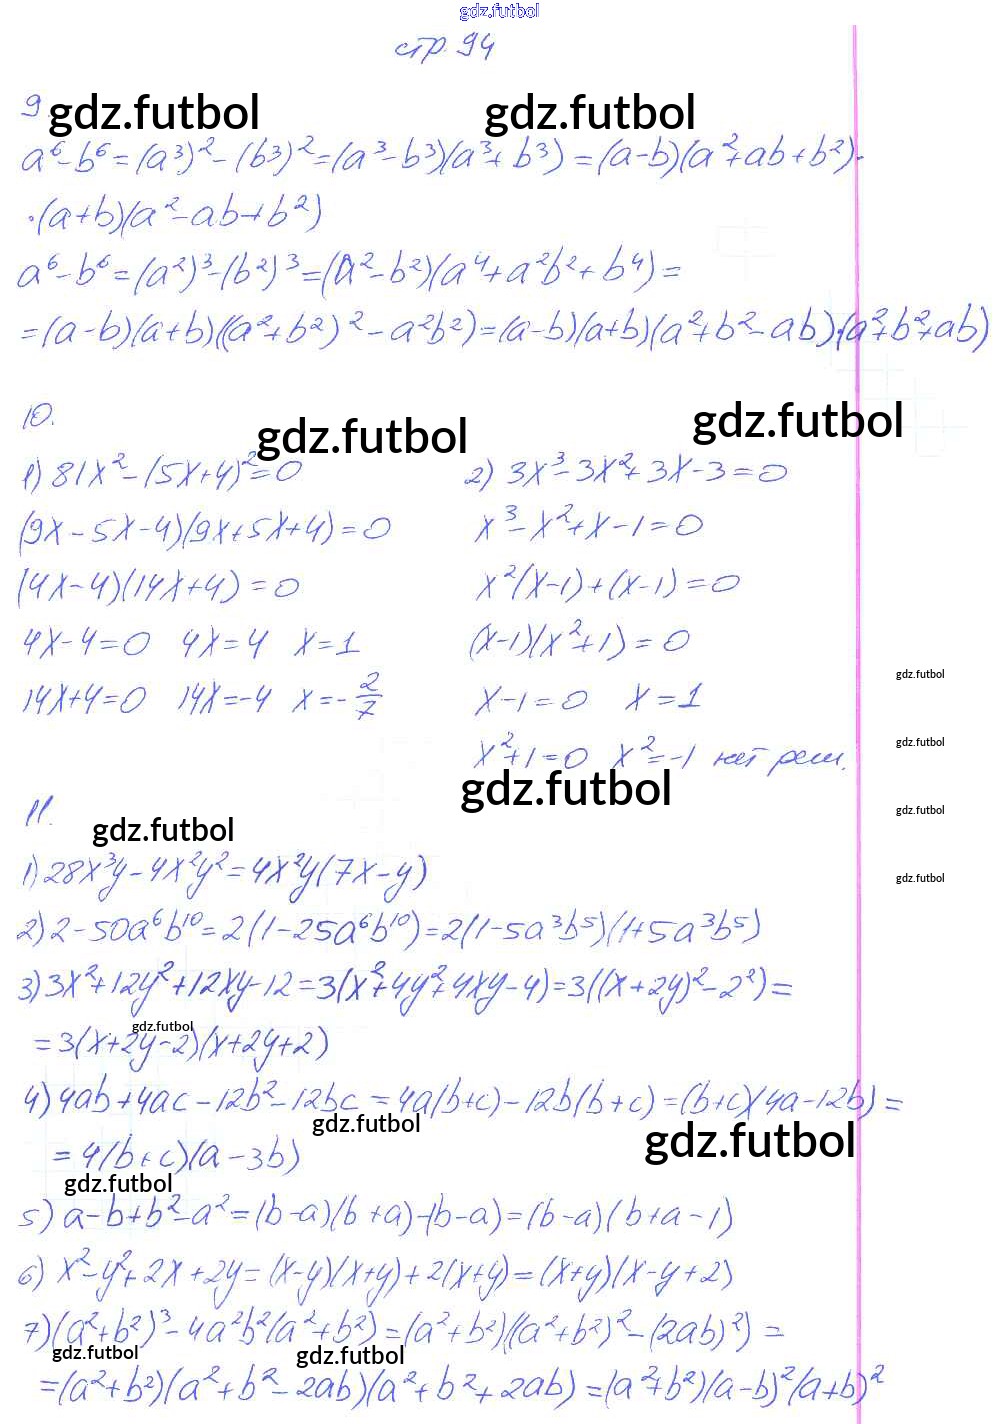 gdz.futbol
стр. 94
9.
gdz.futbol gdz.futbol
a⁶-b⁶=(a³)²-(b³)²=(a³-b³)(a³+b³)=(a-b)(a²+ab+b²)·
·(a+b)(a²-ab+b²)
a⁶-b⁶=(a²)³-(b²)³=(a²-b²)(a⁴+a²b²+b⁴)=
=(a-b)(a+b)((a²+b²)²-a²b²)=(a-b)(a+b)(a²+b²-ab)·(a²+b²+ab)
10.
gdz.futbol gdz.futbol
1) 81x²-(5x+4)²=0
(9x-5x-4)(9x+5x+4)=0
(4x-4)(14x+4)=0
4x-4=0 4x=4 x=1
14x+4=0 14x=-4 x=-2/7
2) 3x³-3x²+3x-3=0
x³-x²+x-1=0
x²(x-1)+(x-1)=0
(x-1)(x²+1)=0
x-1=0 x=1
x²+1=0 x²=-1 нет реш.
gdz.futbol
gdz.futbol
gdz.futbol
gdz.futbol
gdz.futbol
11.
gdz.futbol
1) 28x³y-4x²y²=4x²y(7x-y)
2) 2-50a⁶b¹⁰=2(1-25a⁶b¹⁰)=2(1-5a³b⁵)(1+5a³b⁵)
3) 3x²+12y²+12xy-12=3(x²+4y²+4xy-4)=3((x+2y)²-2²)=
gdz.futbol
=3(x+2y-2)(x+2y+2)
4) 4ab+4ac-12b²-12bc=4a(b+c)-12b(b+c)=(b+c)(4a-12b)=
gdz.futbol gdz.futbol
=4(b+c)(a-3b)
gdz.futbol
5) a-b+b²-a²=(b-a)(b+a)-(b-a)=(b-a)(b+a-1)
6) x²-y²+2x+2y=(x-y)(x+y)+2(x+y)=(x+y)(x-y+2)
7) (a²+b²)³-4a²b²(a²+b²)=(a²+b²)((a²+b²)²-(2ab)²)=
gdz.futbol gdz.futbol
=(a²+b²)(a²+b²-2ab)(a²+b²+2ab)=(a²+b²)(a-b)²(a+b)²